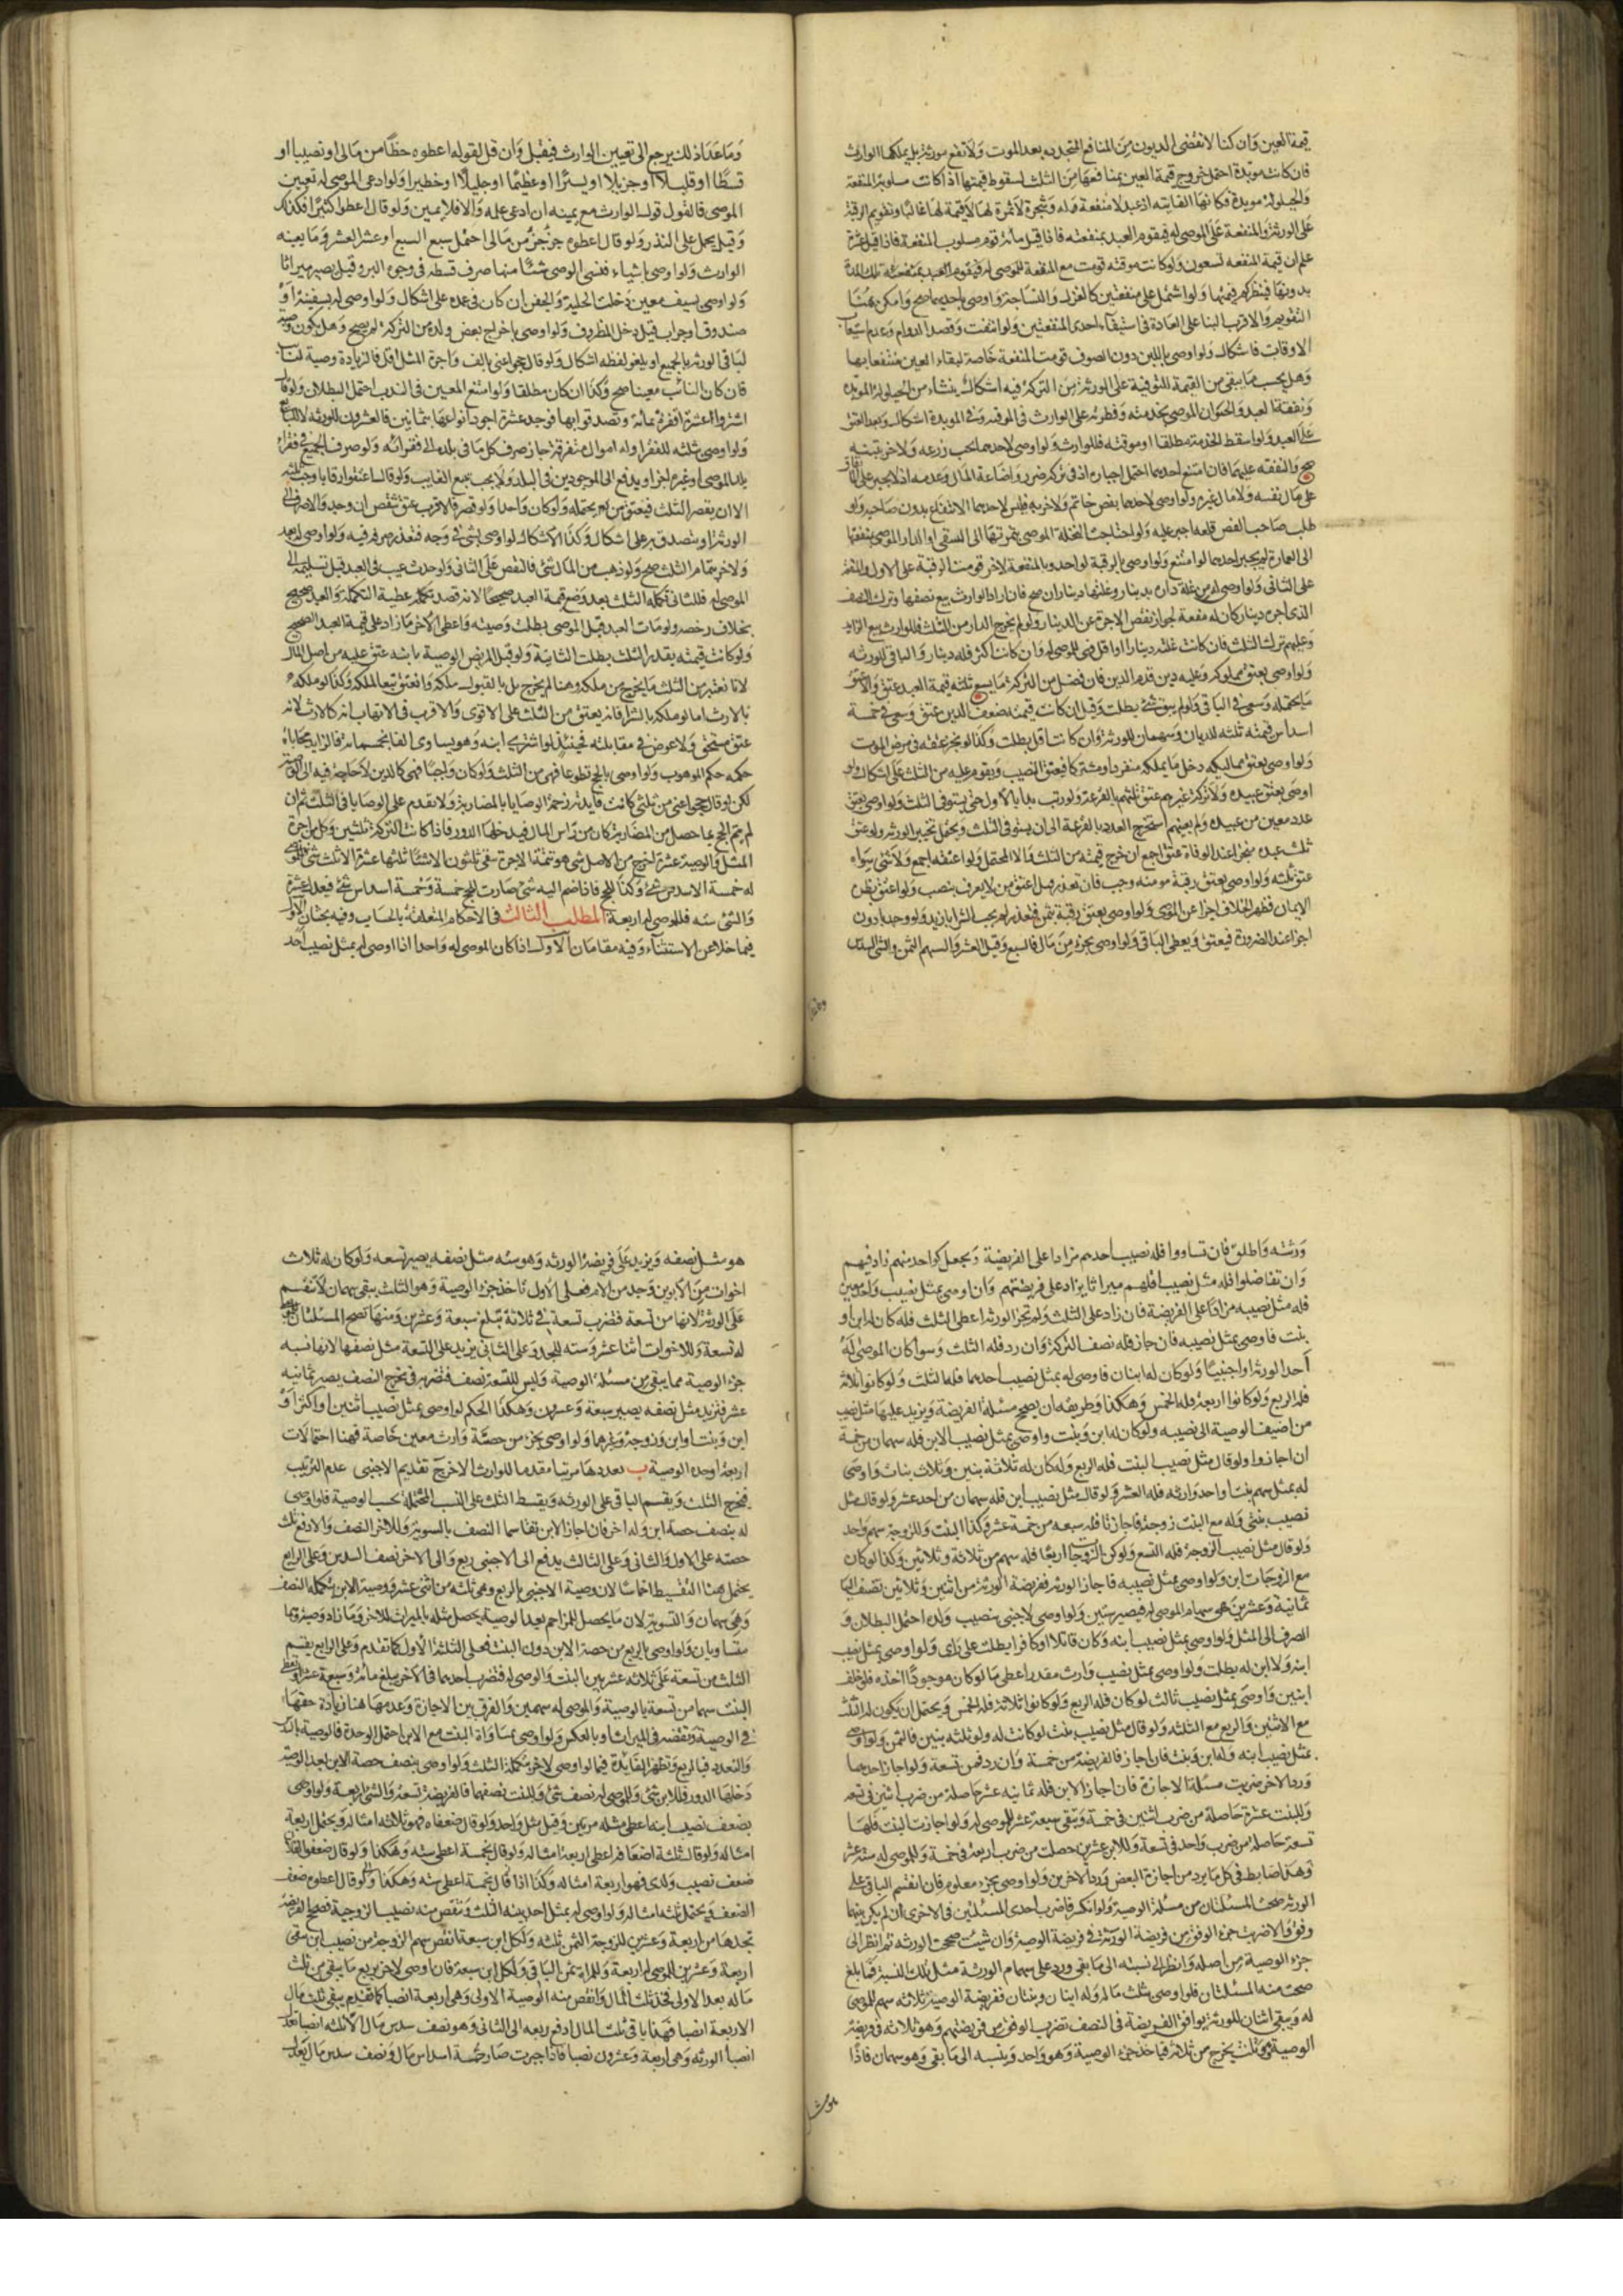 قيمة العين وان كنا لا نقضى الديون من المنافع المتجددة بعد الموت ولا تقع موروثة بل يملكها الوارث
فان كانت مؤبدة احتمل خروج قيمة العين بمنافعها من الثلث لسقوط قيمتها اذا كانت مسلوبة المنفعة
على الورثة والمنفعة على الموصى له فيقوم العبد بمنفعته فاذا قيل مائة قوم مسلوب المنفعة فاذا قيل عشرة
علم ان قيمة المنفعة تسعون ولو كانت موقتة قومت مع المنفعة للموصى له فيقوم العبد بمنفعته تلك المدة
الاوقات فاشكال ولو اوصى باللبن دون الصوف قومت المنفعة خاصة لبقاء العين منتفعا بها
وهل يحسب ما يبقى من القيمة للتوفية على الورثة من التركة فيه اشكال ينشاء من الحيلولة المؤبدة
على العبد ولو اسقط الخدمة مطلقا او موقتة فللوارث ولو اوصى لاحدهما بحب زرعه ولاخر بتبنه
صح والنفقة عليهما فان امتنع احدهما احتمل اجباره اذ في تركه ضرر واضاعة المال وعدمه اذ لا يجبر على الانفاق
على مال نفسه ولا مال غيره ولو اوصى لاحدهما بفص خاتم ولاخر به فليس لاحدهما الانتفاع بدون صاحبه ولو
طلب صاحب الفص قلعه اجبر عليه ولو احتاجت النخلة الموصى بثمرتها الى السقى او الدار الموصى بنفعتها
الى العمارة لم يجبر احدهما لو امتنع ولو اوصى بالرقبة لواحد وبالمنفعة لاخر قومت الرقبة على الاول والمنفعة
على الثانى ولو اوصى له من غلة داره بدينار وغلتها ديناران صح فان اراد الوارث بيع نصفها وترك النصف
الذى اجرته دينار كان له منعه لجواز نقص الاجرة عن الدينار ولو لم يخرج الدار من الثلث فللوارث بيع الزايد
وعليهم ترك الثلث فان كانت غلته دينارا او اقل فهى للموصى له وان كانت اكثر فله دينار والباقى للورثة
ولو اوصى بعتق مملوكه وعليه دين قدم الدين فان فضل من التركة ما يسع ثلثه قيمة العبد عتق والا عتق
ما يحتمله وسعى في الباقى ولو لم يبق شئ بطلت وقيل ان كانت قيمته ضعف الدين عتق وسعى في خمسة
اسداس قيمته ثلثه للديان وسهمان للورثة وان كانت اقل بطلت وكذا لو نجز عتقه في مرض الموت
ولو اوصى بعتق مماليكه دخل ما يملكه منفردا ومشتركا فيعتق النصيب ويقوم عليه من الثلث على اشكال ولو
اوصى بعتق عبيده ولا تركة غيرهم عتق ثلثهم بالقرعة ولو رتب بدا بالاول حتى يستوفى الثلث ولو اوصى بعتق
عدد معين من عبيده ولم يعينهم استخرج العدد بالقرعة الى ان يستوفى الثلث ويحتمل تخيير الورثة ولو عتق
ثلث عبده منجزا عند الوفاة عتق اجمع ان خرج قيمته من الثلث والا المحتمل ولو اعتقه اجمع ولا شئ سواه
عتق ثلثه ولو اوصى بعتق رقبة مومنة وجب فان تعذر قيل اعتق من لا يعرف بنصب ولو اعتق بظن
الايمان فظهر الخلاف اجزا عن الموصى ولو اوصى بعتق رقبة بثمن فتعذر لم يجب الشرا بازيد ولو وجد بادون
اجزا عند الضرورة فيعتق ويعطى الباقى ولو اوصى بجزء من مال فالسبع وقيل العشر والسهم الثمن والشئ السدس
وما عدا ذلك يرجع الى تعيين الوارث فيقبل وان قل لقوله اعطوه حظا من مالى او نصيبا او
قسطا او قليلا او جزيلا او يسيرا او عظيما او جليلا او خطيرا ولو ادعى الموصى له تعيين
الموصى فالقول قول الوارث مع يمينه ان ادعى علمه والا فلا يمين ولو قال اعطوا كثيرا فكذلك
وقيل يحمل على النذر ولو قال اعطوه جزء جزء من مالى احتمل سبع السبع او عشر العشر وما يعينه
الوارث ولو اوصى باشياء فنسى الوصى شئا منها صرف قسطه في وجوه البر وقيل يصير ميراثا
ولو اوصى بسيف معين دخلت الحلية والجفن ان كان في غمده على اشكال ولو اوصى له بسفينة او
صندوق او جراب قيل دخل المظروف ولو اوصى باخراج بعض ولده من التركة لم يصح وهل يكون وصية
لباقى الورثة بالجميع او يلغو لفظه اشكال ولو قال حجوا عنى بالف واجرة المثل اقل فالزيادة وصية للنائب
فان كان النائب معينا صح وكذا ان كان مطلقا ولو امتنع المعين في الندب احتمل البطلان ولو قال
اشتروا عشرة اقفزة بمائة وتصدقوا بها فوجد عشرة اجود انواعها بثمانين فالعشرون للورثة لا للبايع
ولو اوصى بثلثه للفقرا وله اموال متفرقة جاز صرف كل ما في بلده الى فقرائه ولو صرف الجميع في فقراء
بلد الموصى او غيره اجزا ويدفع الى الموجودين في البلد ولا يجب تتبع الغايب ولو قال اعتقوا رقابا وجب ثلثه
الا ان يقصر الثلث فيعتق من يحتمله ولو كان واحدا ولو قصر فالاقرب عتق شقص ان وجد والا صرف الى
الورثة او يتصدق به على اشكال وكذا الاشكال لو اوصى بشئ في وجه فتعذر صرفه فيه ولو اوصى له بعبد
ولاخر بتمام الثلث صح ولو ذهب من المال شئ فالنقص على الثانى ولو حدث عيب في العبد قبل تسليمه الى
الموصى له فللثانى تكملة الثلث بعد وضع قيمة العبد صحيحا لانه قصد بتكلمة عطية التكملة والعبد صحيح
بخلاف رخصه ولو مات العبد قبل الموصى بطلت وصيته واعطى الاخر ما زاد على قيمة العبد الصحيح
ولو كانت قيمته بقدر الثلث بطلت الثانية ولو قبل المريض الوصية بابنه عتق عليه من اصل المال
لانا نعتبر من الثلث ما يخرج من ملكه وهنا لم يخرج بل بالقبول ملكه وانعتق تبعا لملكه وكذا لو ملكه
بالارث اما لو ملكه بالشرا فانه يعتق من الثلث على الاقوى والاقرب في الاتهاب انه كالارث لانه
عتق مستحق ولا عوض في مقابلته فحينئذ لو اشترى ابنه وهو يساوى الفا بخمسمائة فالزايد محاباة
حكمه حكم الموهوب ولو اوصى بالحج تطوعا فهى من الثلث ولو كان واجبا فهى كالدين لا حاجة فيه الى الوصية
لكن لو قال حجوا عنى من ثلثى كانت فايدته زحمة الوصايا بالمضاربة ولا يقدم على الوصايا في الثلث ثم ان
لم يتم الحج بما حصل من المضاربة كان من راس المال فيدخلها الدور فاذا كانت التركة ثلثين وكل من اجرة
المثل والوصية عشرة اخرج من الاصل شئ هو تتمة الاجرة يبقى ثلثون الا شئا ثلثها عشرة الا ثلث شئ للموصى
له خمسة الا سدس شئ وكذا للحج فاذا ضم اليه شئ صارت للحج خمسة وخمسة اسداس شئ فيعدل عشرة
والشئ سته فللموصى له اربعة المطلب الثالث في الاحكام المتعلقة بالحساب وفيه بحثان الاول
فيما خلا عن الاستثناء وفيه مقامان الاول اذا كان الموصى له واحدا اذا اوصى له بمثل نصيب احد
ورثته واطلق فان تساووا فله نصيب احدهم مزادا على الفريضة ويجعل كواحد منهم زاد فيهم
وان تفاضلوا فله مثل نصيب اقلهم ميراثا يزاد على فريضتهم وان اوصى بمثل نصيب واحد معين
فله مثل نصيبه مزادا على الفريضة فان زاد على الثلث ولم تجز الورثة اعطى الثلث فلو كان له ابن او
بنت فاوصى بمثل نصيبه فان جاز فله نصف التركة وان رد فله الثلث وسوا كان الموصى له
احد الورثة او اجنبيا ولو كان له ابنان فاوصى له بمثل نصيب احدهما فله الثلث ولو كانوا ثلاثة
فله الربع ولو كانوا اربعة فله الخمس وهكذا وطريقه ان يصحح مسئلة الفريضة ويزيد عليها مثل نصيب
من اضيف الوصية الى نصيبه ولو كان له ابن وبنت واوصى بمثل نصيب الابن فله سهمان من خمسة
ان اجازوا ولو قال مثل نصيب البنت فله الربع ولو كان له ثلاثة بنين وثلاث بنات واوصى
له بمثل سهم بنت او احد وراثه فله العشر ولو قال مثل نصيب ابن فله سهمان من احد عشر ولو قال مثل
نصيب بنتى وله مع البنت زوجة فاجازتا فله سبعة من خمسة عشر وكذا البنت وللزوجة سهم واحد
ولو قال مثل نصيب الزوجة فله التسع ولو كن الزوجات اربعا فله سهم من ثلاثة وثلاثين وكذا لو كان
مع الزوجات ابن ولو اوصى بمثل نصيبه فاجاز الورثة ففريضة الورثة من اثنين وثلاثين تضيف اليها
ثمانية وعشرين هى سهام الموصى له فيصير ستين ولو اوصى لاجنبى بنصيب ولده احتمل البطلان و
الصرف الى المثل ولو اوصى بمثل نصيب ابنه وكان قاتلا او كافرا بطلت على راى ولو اوصى بمثل نصيب
ابنه ولا ابن له بطلت ولو اوصى بمثل نصيب وارث مقدر اعطى ما لو كان موجودا اخذه فلو خلف
ابنين واوصى بمثل نصيب ثالث لو كان فله الربع ولو كانوا ثلاثة فله الخمس ويحتمل ان يكون له الثلث
مع الاثنين والربع مع الثلثة ولو قال مثل نصيب بنت لو كانت له وله ثلثة بنين فالثمن ولو اوصى
بمثل نصيب ابنه وله ابن وبنت فان اجاز فالفريضة من خمسة وان رد فمن تسعة ولو اجاز احدهما
ورد الاخر ضربت مسئلة الاجازة فان اجاز الابن فله ثمانية عشر حاصلة من ضرب اثنين في تسعة
وللبنت عشرة حاصلة من ضرب اثنين في خمسة ويبقى سبعة عشر للموصى له ولو اجازت البنت فلها
تسعة حاصلة من ضرب واحد في تسعة وللابن عشرين حصلت من ضرب اربعة في خمسة وللموصى له ستة عشر
وهذا ضابط في كل ما يرد من اجازة البعض ورد الاخرين ولو اوصى بجزء معلوم فان انقسم الباقى على
الورثة صحت المسئلتان من مسئلة الوصية ولو انكسر فاضرب احدى المسئلتين في الاخرى ان لم يكن بينهما
وفق والا ضربت جزء الوفق من فريضة الورثة في فريضة الوصية وان شئت صححت الورثة ثم انظر الى
جزء الوصية من اصله وانظر الى نسبته الى ما بقى وزد على سهام الورثة مثل تلك النسبة فما بلغ
صحت منه المسئلتان فلو اوصى بثلث ماله وله ابنان وبنتان ففريضة الوصية ثلاثة سهم للموصى
له ويبقى اثنان للورثة يوافق الفريضة في النصف تضرب الوفق من فريضتهم وهو ثلاثة في فريضة
الوصية وهى ثلث يخرج من ثلاثة فياخذ جزء الوصية وهو واحد وينسبه الى ما بقى وهو سهمان فاذا
هو مثل نصفه ويزيد على فريضة الورثة وهو سته مثل نصفه يصير تسعة ولو كان له ثلاث
اخوات من الابوين وجد من الام فعلى الاول ناخذ جزء الوصية وهو الثلث يبقى سهمان لا تنقسم
على الورثة لانها من تسعة فتضرب تسعة في ثلاثة تبلغ سبعة وعشرين ومنها تصح المسئلتان
له تسعة وللاخوات اثنا عشر وسته للجد وعلى الثانى يزيد على التسعة مثل نصفها لانها نسبة
جزء الوصية مما يبقى من مسئلة الوصية وليس للتسعة نصف فتضرب في مخرج النصف يصير ثمانية
عشر فنزيد مثل نصفه يصير سبعة وعشرين وهكذا الحكم لو اوصى بمثل نصيب اثنين او اكثر او
ابن وبنت او ابن وزوجة وغيرها ولو اوصى بجزء من حصة وارث معين خاصة فهنا احتمالات
اربعة اوحده الوصية ب تعددها مرتبا مقدما للوارث الاخر ج تقديم الاجنبى عدم الترتيب
فيخرج الثلث ويقسم الباقى على الورثة ويقسط الثلث على النسب المحتملة بحسب الوصية فلو اوصى
له بنصف حصة ابن وله اخر فان اجاز الابن تقاسما النصف بالسوية وللاخر النصف والا دفع ثلث
حصته على الاول والثانى وعلى الثالث يدفع الى الاجنبى ربع والى الاخر نصف السدس وعلى الرابع
يحتمل هذا التقسيط اخماسا لان وصية الاجنبى بالربع وهى ثلثة من اثنى عشر ووصية الابن بتكملة النصف
وهى سهمان والتسوية لان ما يحصل للمزاحم بعد الوصية يحصل مثله بالميراث للاخر وما زاد وصية فهما
متساويان ولو اوصى بالربع من حصة الابن دون البنت فعلى الثلثة الاول كما تقدم وعلى الرابع يقسم
الثلث من تسعة على ثلاثة عشر بين البنت والموصى له فتضرب احدهما في الاخر يبلغ مائة وسبعة عشر
البنت سهما من تسعة بالوصية والموصى له سهمين والفرق بين الاجازة وعدمها هنا زيادة حقها
في الوصية ونقصه في الميراث او بالعكس ولو اوصى بمساواة البنت مع الابن احتمل الوحدة فالوصية
والتعدد فبالربع وتظهر الفايدة فيما لو اوصى لاخر بتكملة الثلث ولو اوصى بنصف حصة الابن بعد الوصية
دخلها الدور فللابن شئ وللموصى له نصف شئ وللبنت نصفهما فالفريضة تسعة والشئ اربعة ولو اوصى
بضعف نصيب ابنه اعطى مثله مرتين وقيل مثل واحد ولو قال ضعفاه فهو ثلاثة امثاله ويحتمل اربعة
امثاله ولو قال ثلثة اضعافه اعطى اربعة امثاله ولو قال خمسة اعطى سته وهكذا ولو قال ضعفوا لفلان
ضعف نصيب ولدى فهو اربعة امثاله وكذا اذا قال خمسة اعطى سته وهكذا ولو قال اعطوه ضعف
الضعف ويحتمل ثلثة امثاله ولو اوصى له بمثل احد بنيه الثلث ونقص منه نصيب الزوجية فصحح الفريضة
تجدها من اربعة وعشرين للزوجة الثمن ثلثة ولكل ابن سبعة انقص سهم الزوجة من نصيب ابن يبقى
اربعة وعشرين للموصى له اربعة وللمراة ثمن الباقى ولكل ابن سبعة فان اوصى لاخر بربع ما يبقى من ثلث
ماله بعد الاولى فخذ ثلث المال وانقص منه الوصية الاولى وهى اربعة انصبا كما تقدم يبقى ثلث مال
الاربعة انصبا فهذا باقى ثلث المال ادفع ربعه الى الثانى وهو نصف سدس مال الا ثلثه انصبا تعدل
انصبا الورثة وهى اربعة وعشرون نصيبا فاذا جبرت صار خمسة اسداس مال ونصف سدس مال يعدل